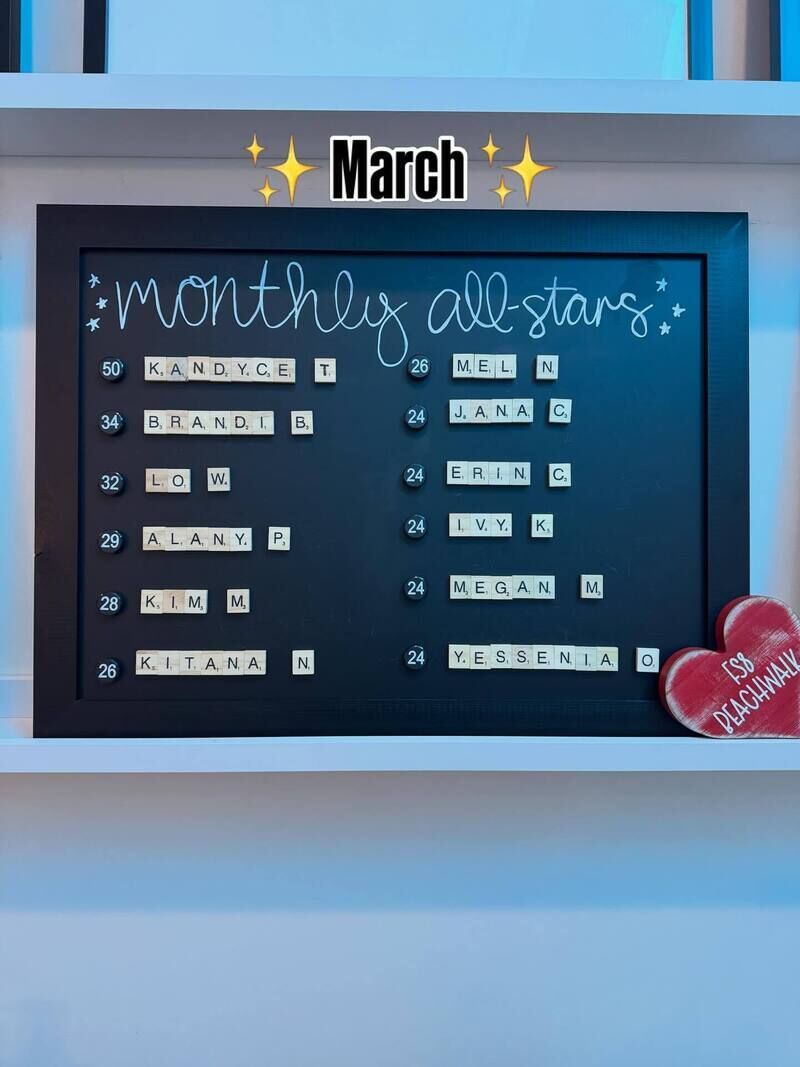 March
monthly all-stars
50 KANDYCE T
34 BRANDI B
32 LO W
29 ALANY P
28 KIM M
26 KITANA N
26 MEL N
24 JANA C
24 ERIN C
24 IVY K
24 MEGAN M
24 YESSENIA O
FS8
BEACHWALK